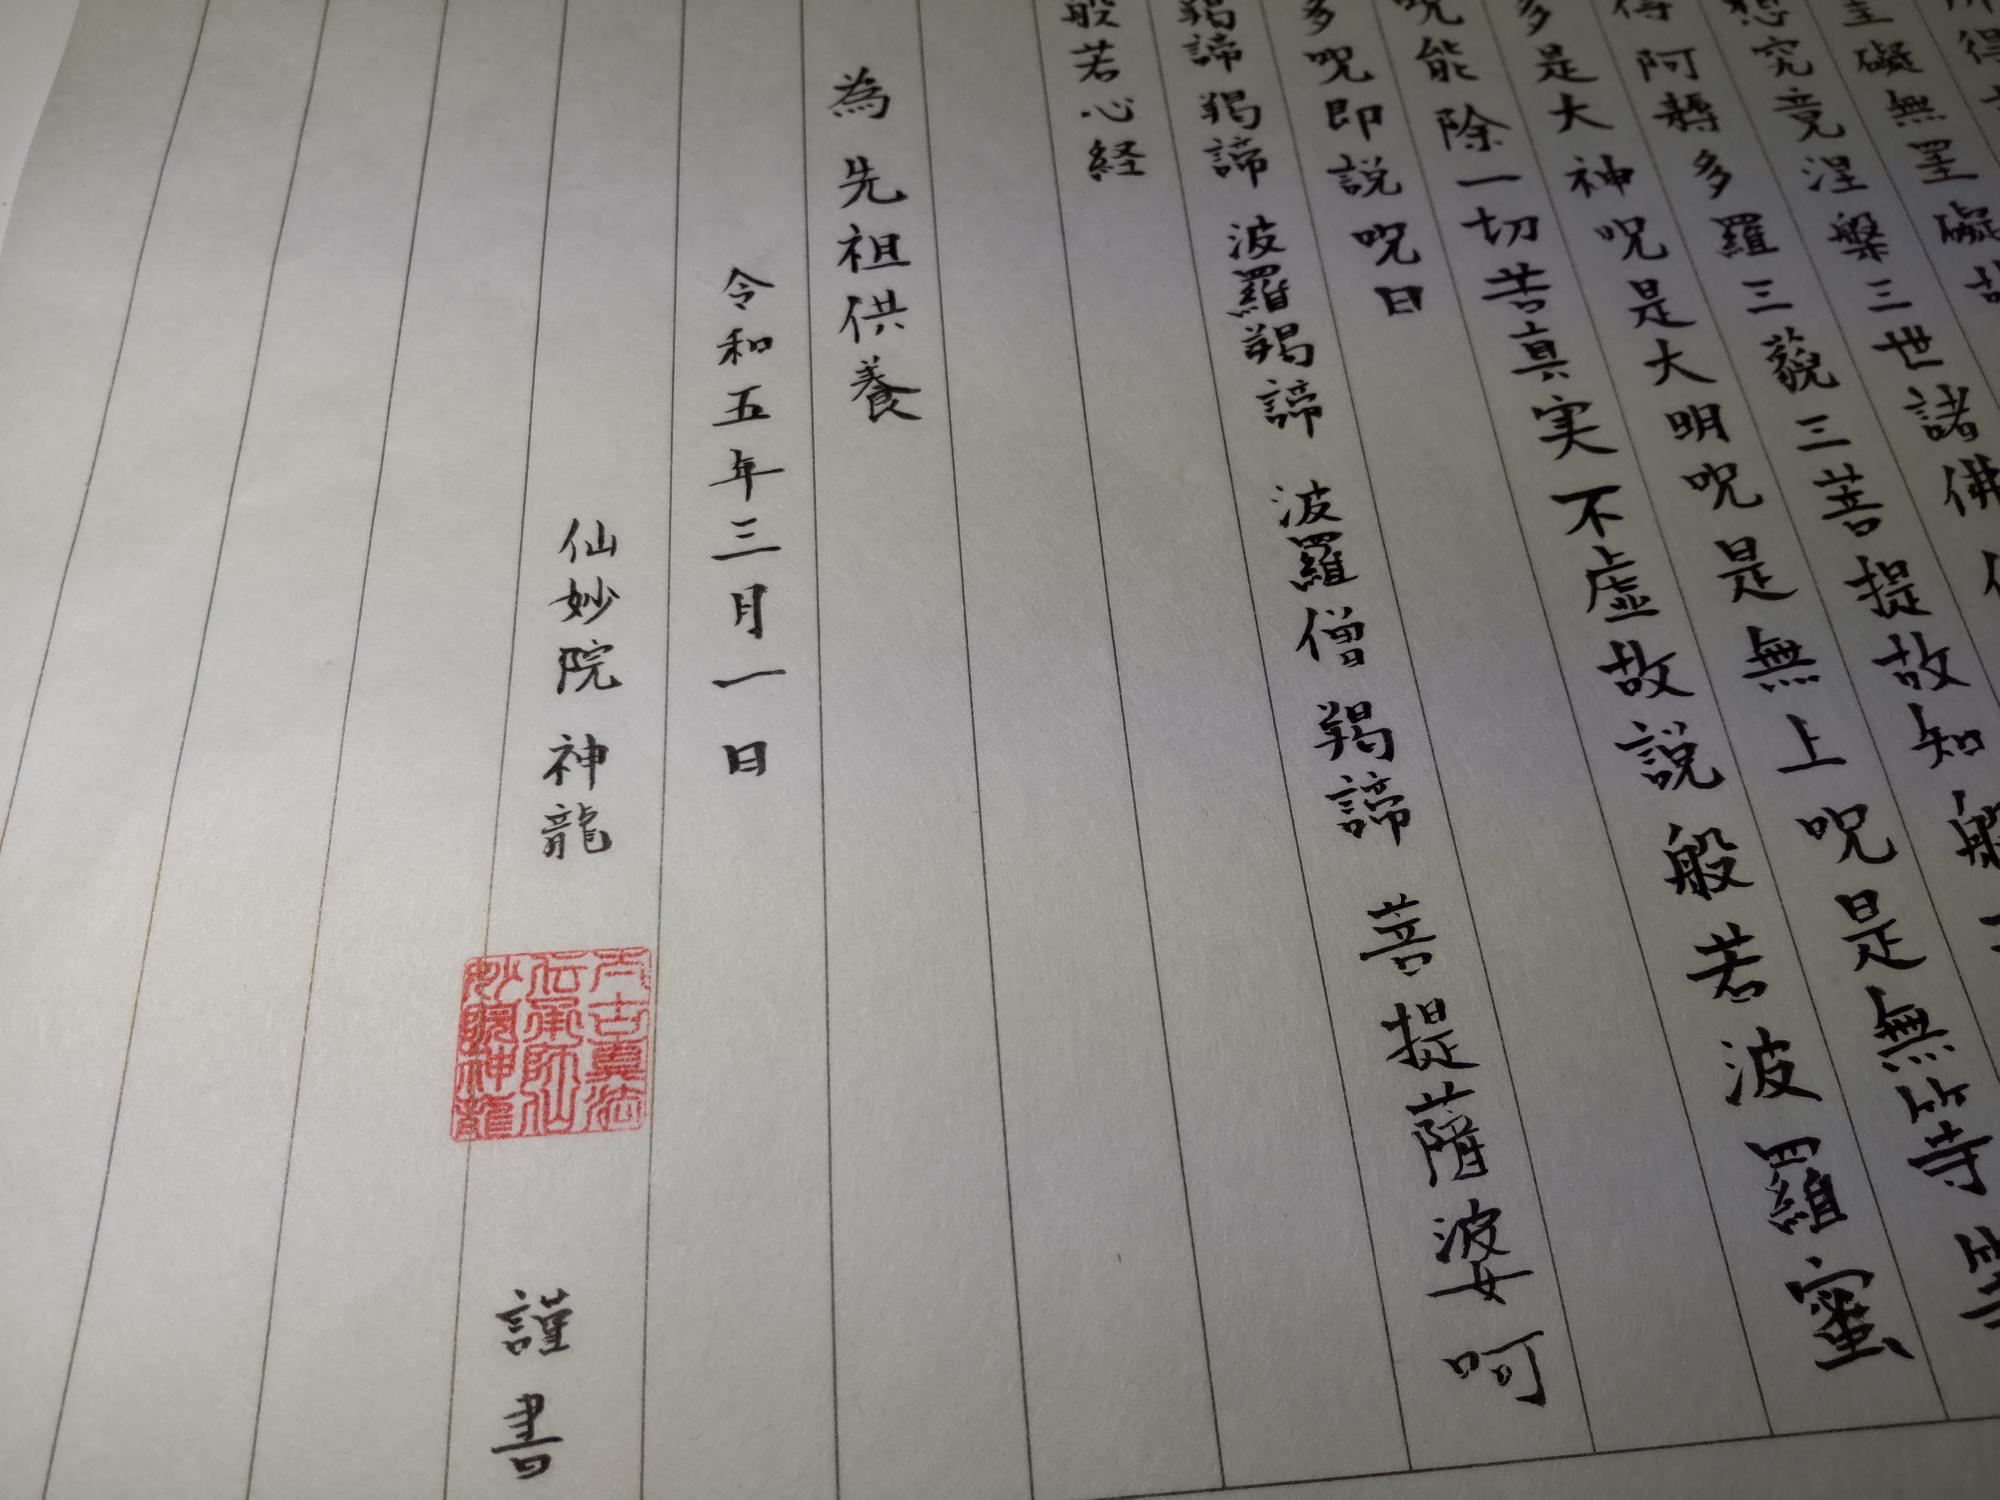 所得
罣礙無罣礙故
想究竟涅槃三世諸佛
得阿耨多羅三藐三菩提故知般
多是大神呪是大明呪是無上呪是無等等
呪能除一切苦真実不虚故説般若波羅蜜
多呪即説呪曰
羯諦羯諦波羅羯諦波羅僧羯諦菩提薩婆呵
般若心経
為先祖供養
令和五年三月一日
仙妙院神龍
謹書
古真法
伝承師仙
妙院神龍